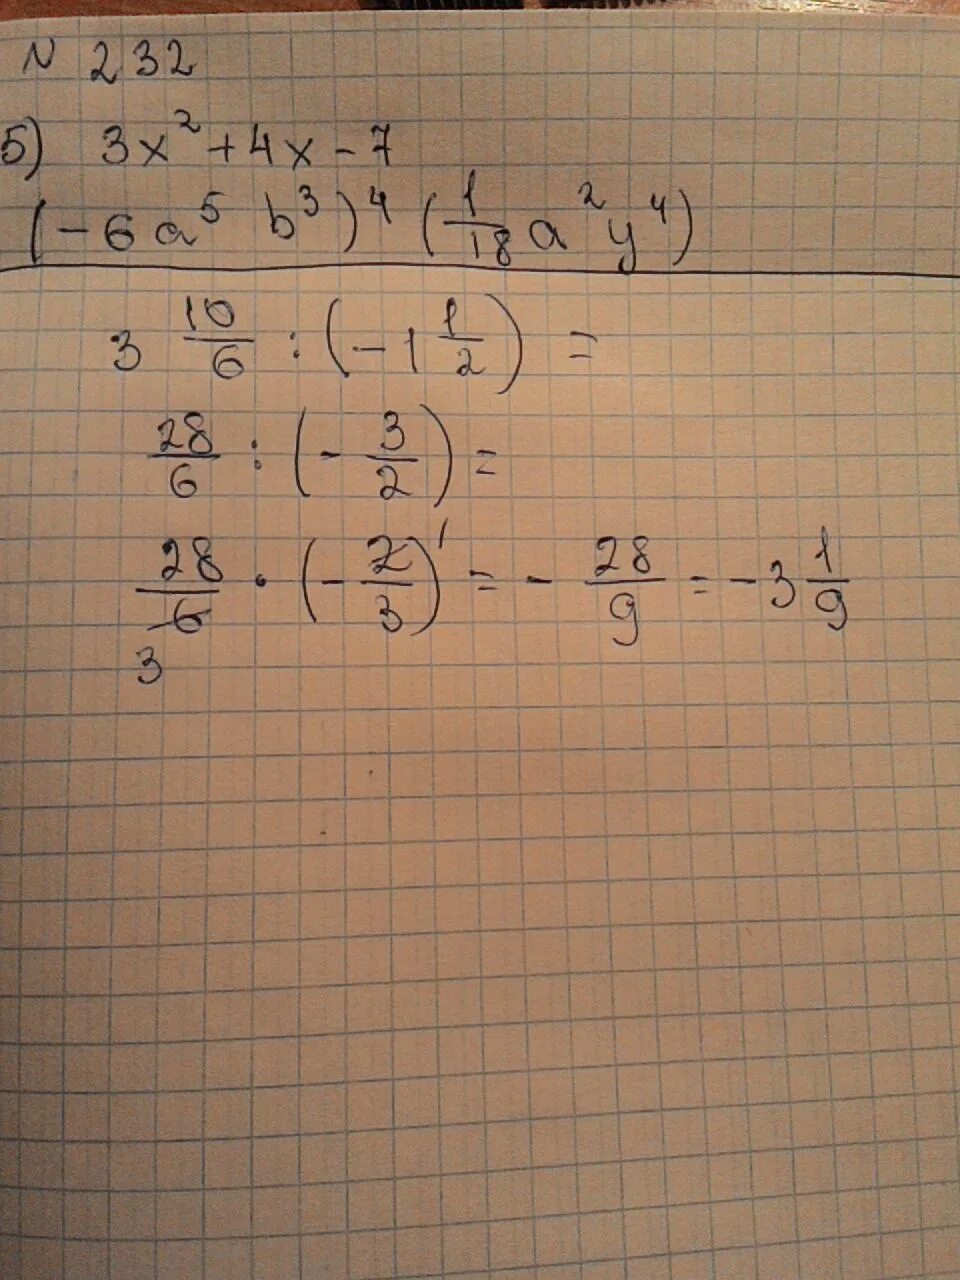 N 232
5) 3x² + 4x - 7
(-6a⁵ b³)⁴ (1/18 a² y⁴)
3 10/6 : (-1 1/2) =
28/6 : (- 3/2) =
28/6 · (- 2/3) 1 = - 28/9 = -3 1/9
3